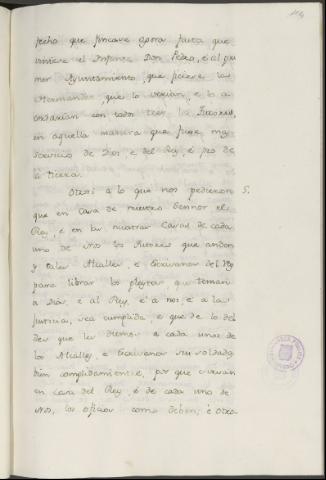 114
fecho que fincare agora fasta que
viniere el Infante Don Pedro, e al pri
mer Ayuntamiento, que ficiere la
Hermandat, que lo verian, e lo a
cordarian con todos los
en aquella manera que fuese mas
servicio de Dios, e del Rey, e pro de
la tierra.
Otrosi a lo que nos pedieron 5.
que en Casa de nuestro Sennor el
Rey, e en las nuestras Casas de cada
uno de Nos los Tutores que anden
y tales Alcalles, e Escrivanos del Rey
para librar los pleytos, que teman
a Dios, e al Rey, e a nos, e a la
Justicia, sea cumplida e que de lo del
Rey que les diemos a cada unos de
los Alcalles, e Escrivanos su soldada
bien complidamiente, por que sirvan
en casa del Rey, e de cada uno de
Nos, los oficios como deben; e otro